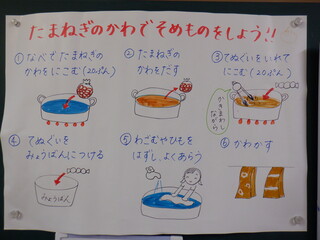 たまねぎのかわでそめものをしよう!!
①なべでたまねぎの
かわをにこむ(20ぷん)
②たまねぎの
かわをだす
③てぬぐいをいれて
にこむ(20ぷん)
かきまわし
ながら
④てぬぐいを
みょうばんにつける
みょうばん
⑤わごむやひもを
はずしよくあらう
⑥かわかす